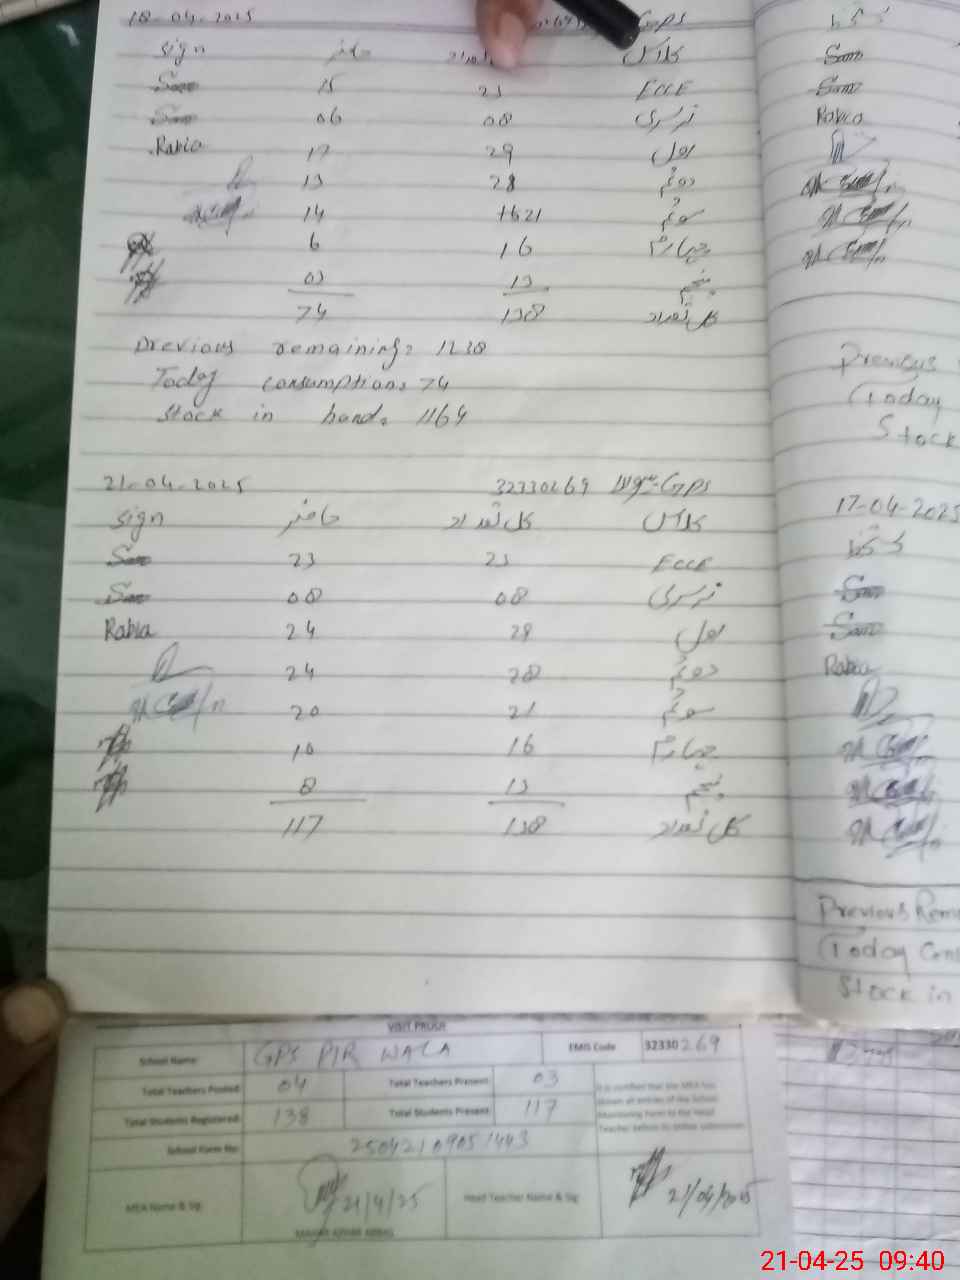 18-04-2025 GPS
sign حاضر تعداد کلاس
Sam 15 23 ECCE
Sam 06 08 نرسری
Rabia 17 29 اول
13 28 دوئم
14 21 سوئم
6 16 چہارم
03 13 پنجم
74 138 کل تعداد
Previous remaining= 1238
Today consumption= 74
Stock in hand= 1164
21-04-2025 32330269 GPS
Sign حاضر کل تعداد کلاس
Sam 23 23 ECCE
Sam 08 08 نرسری
Rabia 24 29 اول
24 28 دوئم
20 21 سوئم
10 16 چہارم
8 13 پنجم
117 138 کل تعداد
Sam
Sam
Rabia
Previous
(Today
Stock
17-04-2025
Sam
Sam
Rabia
Previous Rem
(Today Con
Stock in
VISIT PROOF
School Name: GPS PIR WALA EMIS Code 32330269
Total Teachers Posted: 04 Total Teachers Present: 03
Total Students Registered: 138 Total Students Present: 117
It is certified that the MEA has
shown all entries of the School
Monitoring Form to the Head
Teacher before its online submission
School Form No: 25042109051443
MEA Name & Sig: 21/4/25 Head Teacher Name & Sig: 21/04/2025
21-04-25 09:40